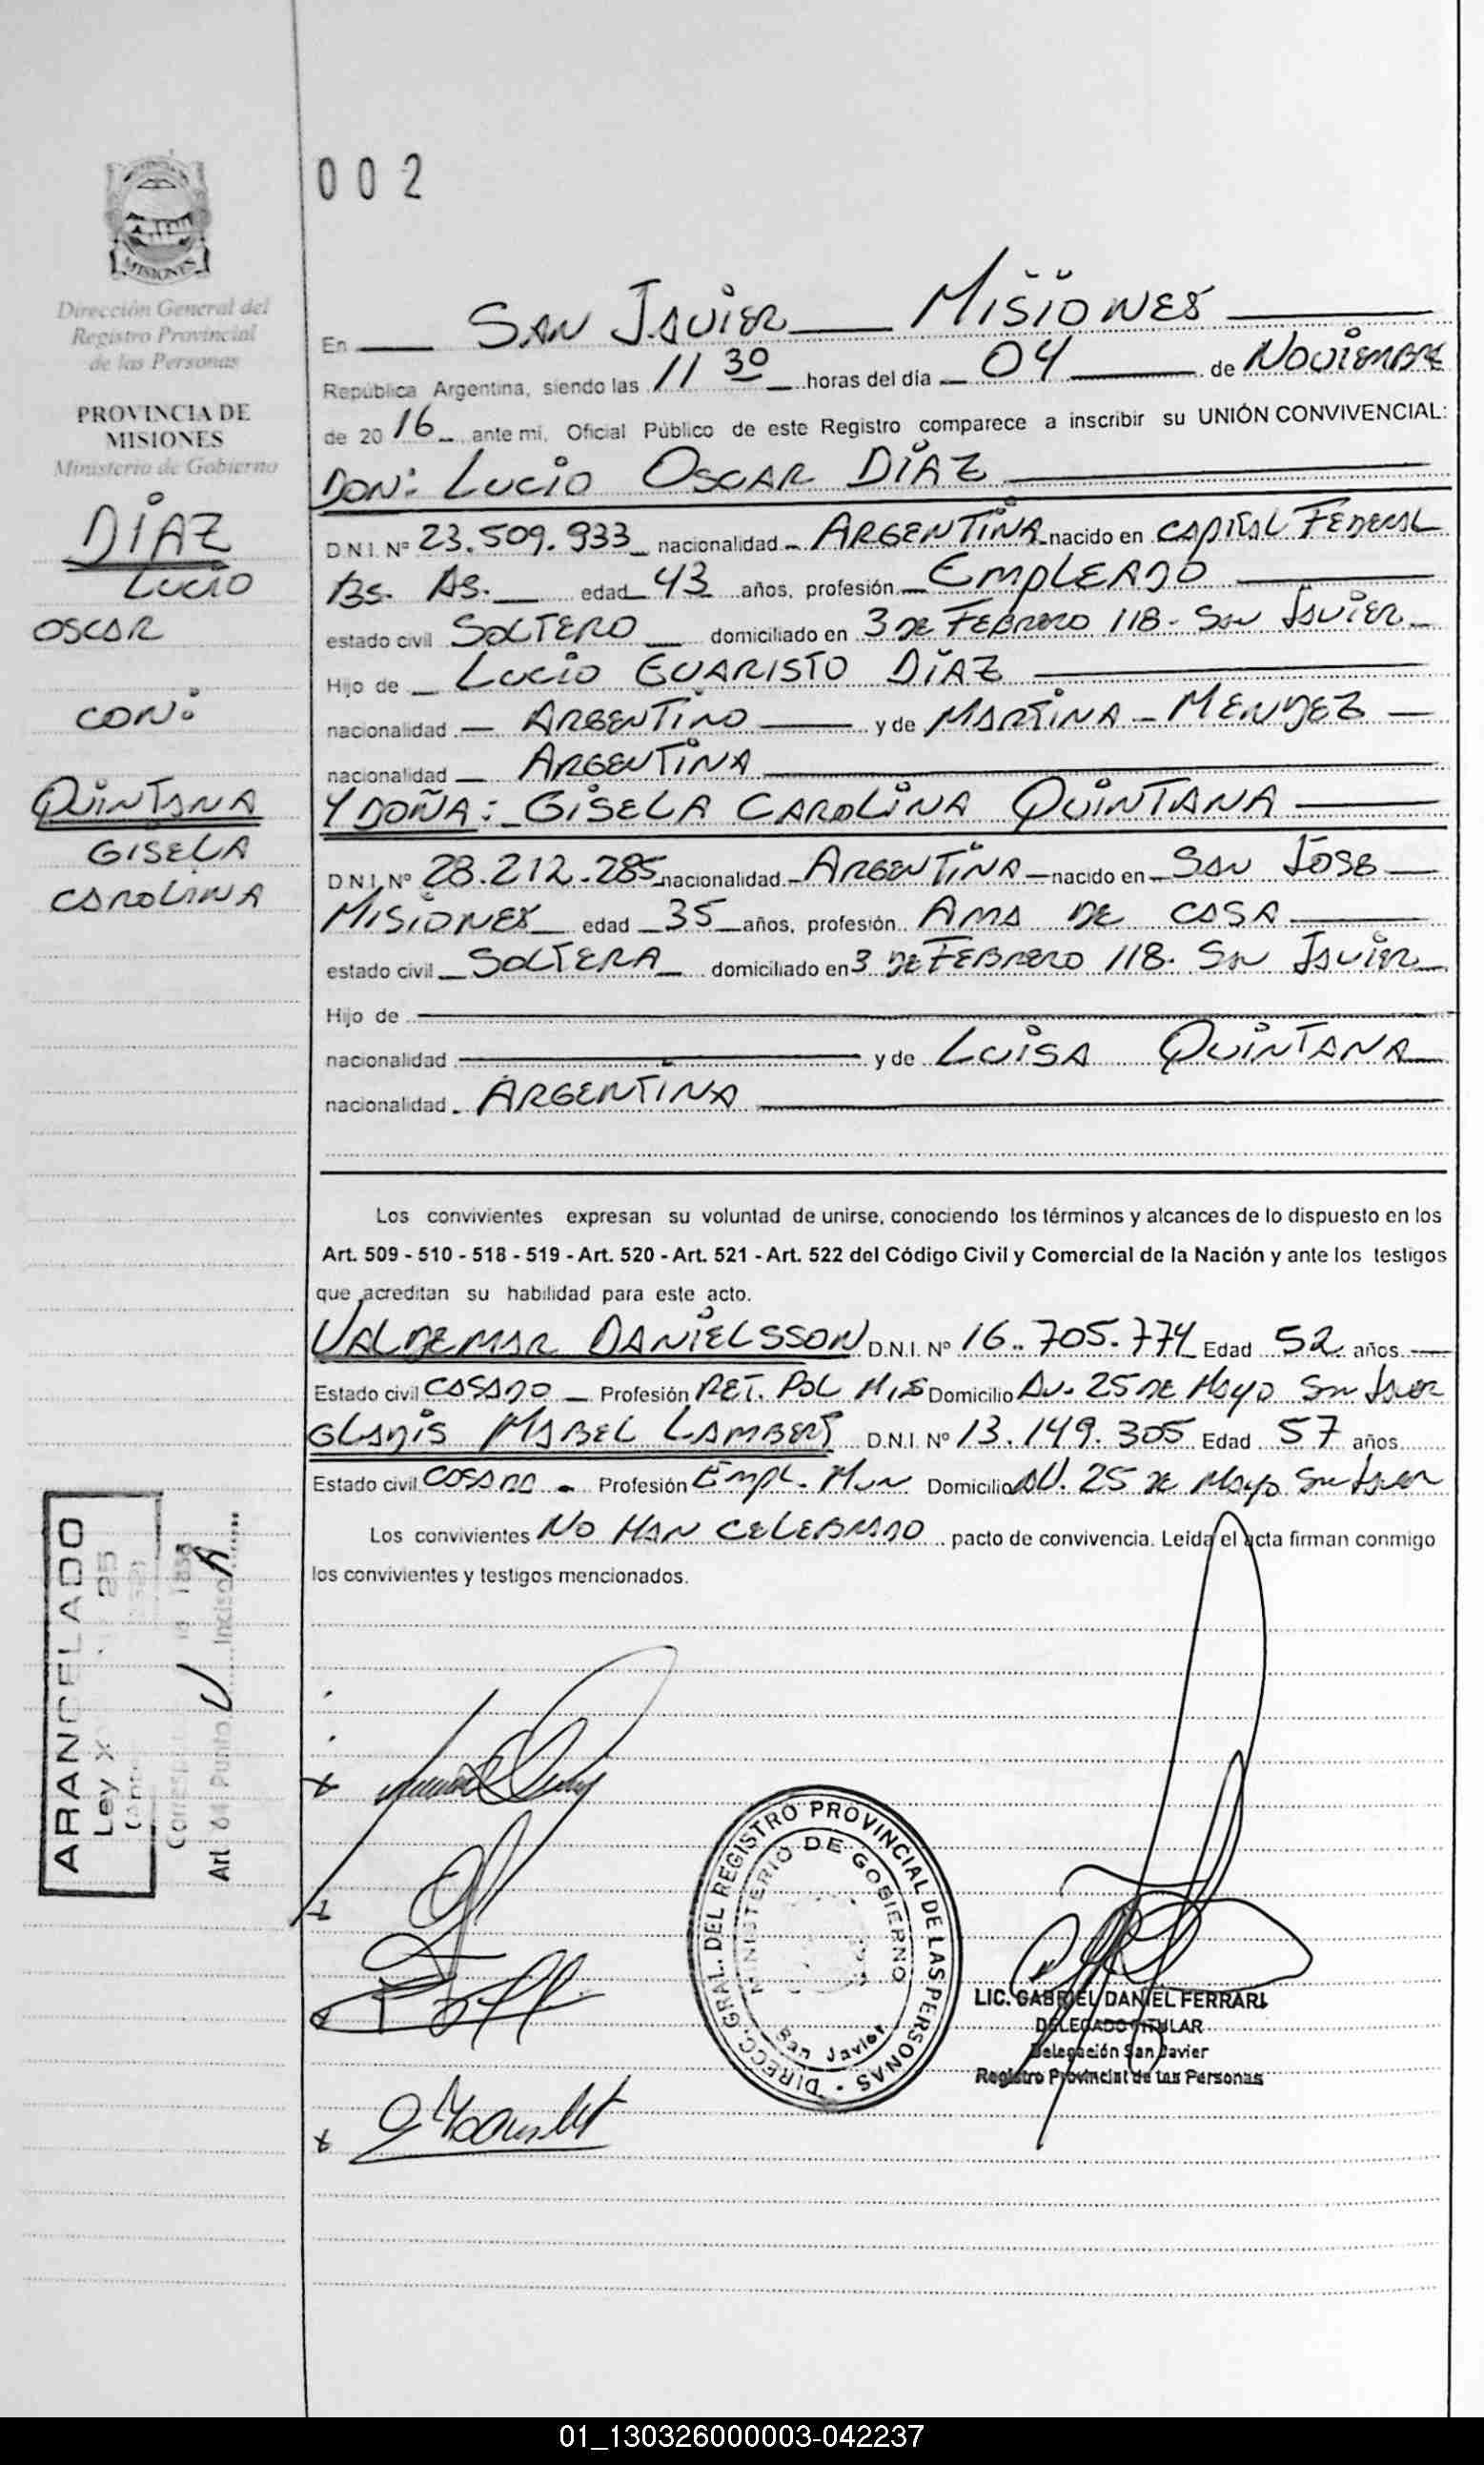 002
MISIONES
Dirección General del
Registro Provincial
de las Personas
PROVINCIA DE
MISIONES
Ministerio de Gobierno
DÍAZ
LUCIO
OSCAR
CON:
QUINTANA
GISELA
CAROLINA
En SAN JAVIER MISIONES
República Argentina, siendo las 11 30 horas del día 04 de NOVIEMBRE
de 20 16 ante mi, Oficial Público de este Registro comparece a inscribir su UNIÓN CONVIVENCIAL:
DON: LUCIO OSCAR DÍAZ
D.N.I. Nº 23.509.933 nacionalidad ARGENTINA nacido en CAPITAL FEDERAL
Bs. As. edad 43 años, profesión EMPLEADO
estado civil SOLTERO domiciliado en 3 DE FEBRERO 118 - SAN JAVIER
Hijo de LUCIO EVARISTO DÍAZ
nacionalidad ARGENTINO y de MARTINA MENDEZ
nacionalidad ARGENTINA
Y DOÑA: GISELA CAROLINA QUINTANA
D.N.I. Nº 28.212.285 nacionalidad ARGENTINA nacido en SAN JOSE
MISIONES edad 35 años, profesión AMA DE CASA
estado civil SOLTERA domiciliado en 3 DE FEBRERO 118. SAN JAVIER
Hijo de
nacionalidad y de LUISA QUINTANA
nacionalidad ARGENTINA
Los convivientes expresan su voluntad de unirse, conociendo los términos y alcances de lo dispuesto en los
Art. 509 - 510 - 518 - 519 - Art. 520 - Art. 521 - Art. 522 del Código Civil y Comercial de la Nación y ante los testigos
que acreditan su habilidad para este acto.
VALDEMAR DANIELSSON D.N.I. Nº 16.705.774 Edad 52 años
Estado civil CASADO Profesión RET. POL MIS Domicilio AV. 25 DE MAYO SAN JAVIER
GLADIS MABEL LAMBERT D.N.I. Nº 13.149.305 Edad 57 años
Estado civil CASADA Profesión EMPL. MUN Domicilio AV. 25 DE MAYO SAN JAVIER
Los convivientes NO HAN CELEBRADO pacto de convivencia. Leída el acta firman conmigo
los convivientes y testigos mencionados.
ARANCELADO
Ley X
Art. 64 Punto V Inciso A
DIRECC. GRAL. DEL REGISTRO PROVINCIAL DE LAS PERSONAS
MINISTERIO DE GOBIERNO
San Javier
LIC. GABRIEL DANIEL FERRARI
DELEGADO TITULAR
Delegación San Javier
Registro Provincial de las Personas
01_130326000003-042237